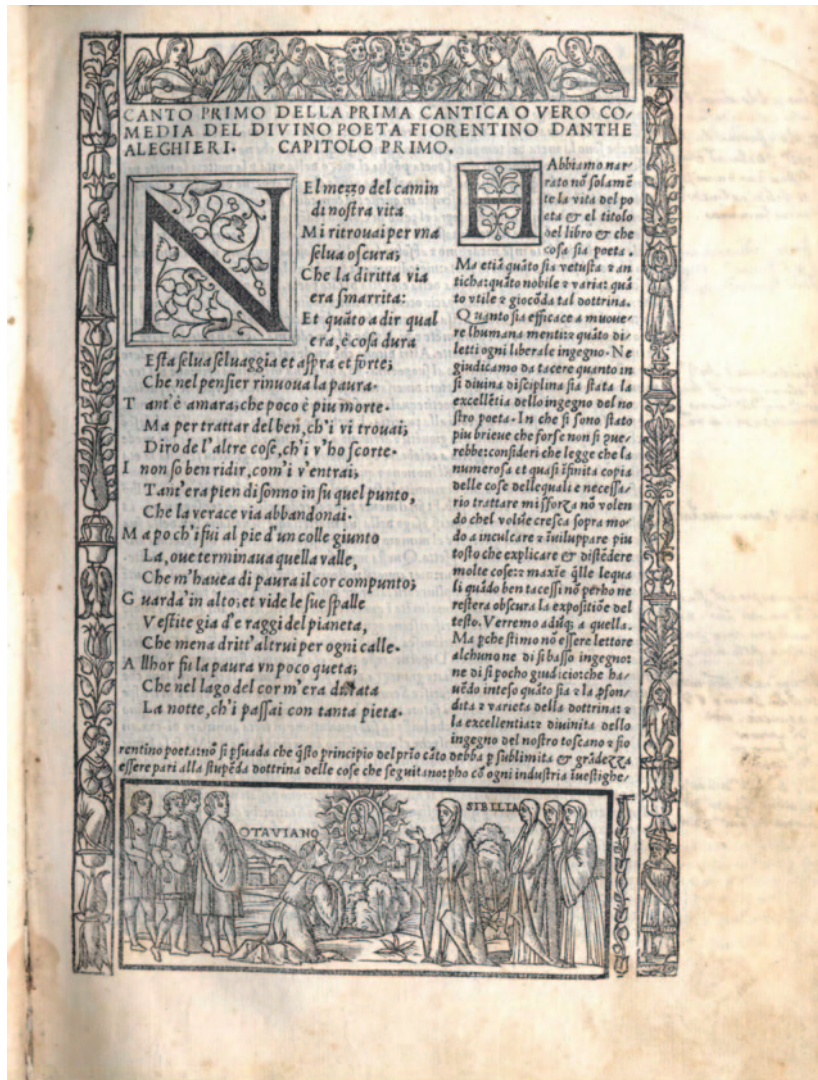 CANTO PRIMO DELLA PRIMA CANTICA O VERO CO/
MEDIA DEL DIVINO POETA FIORENTINO DANTHE
ALEGHIERI. CAPITOLO PRIMO.
NEl mezzo del camin
di nostra vita
Mi ritrouai per vna
selua oscura;
Che la diritta via
era smarrita:
Et quãto a dir qual
era, è cosa dura
Esta selua seluaggia et aspra et forte;
Che nel pensier rinuoua la paura.
Tant'è amara; che poco è piu morte.
Ma per trattar del ben, ch'i vi trouai;
Diro de l'altre cose, ch'i v'ho scorte.
I non so ben ridir, com'i v'entrai;
Tant'era pien di sonno in su quel punto,
Che la verace via abbandonai.
Ma po ch'i fui al pie d'un colle giunto
La, oue terminaua quella valle,
Che m'hauea di paura il cor compunto;
Guarda'in alto; et vide le sue spalle
Vestite gia d'e raggi del pianeta,
Che mena dritt'altrui per ogni calle.
Allhor fu la paura vn poco queta;
Che nel lago del cor m'era
La notte, ch'i passai con tanta pieta.
HAbbiamo nar/
rato nõ solamẽ
te la vita del po
eta & el titolo
del libro & che
cosa sia poeta.
Ma etiã quãto sia vetusta ⁊ an
ticha: quãto nobile ⁊ varia: quã
to vtile ⁊ giocõda tal dottrina.
Quanto sia efficace a muoue/
re lhumana menti: ⁊ quãto di/
letti ogni liberale ingegno. Ne
giudicamo da tacere quanto in
si diuina disciplina sia stata la
excellẽtia dello ingegno del no
stro poeta. In che si sono stato
piu brieue che forse non si pue/
rebbe: consideri che legge che la
numerosa et quasi ĩfinita copia
delle cose dellequali e necessa/
rio trattare mi sforza nõ volen
do chel volũe cresca sopra mo/
do a inculcare ⁊ ĩuiluppare piu
tosto che explicare & distẽdere
molte cose: ⁊ maxĩe q̃lle lequa
li quãdo ben tacessi nõ perho ne
restera obscura la expositiõe del
testo. Verremo adũq; a quella.
Ma ꝑche stimo nõ essere lettore
alchuno ne di si basso ingegno:
ne di si pocho giudicio: che ha/
uẽdo inteso quãto sia ⁊ la ꝓfon/
dita ⁊ varieta della dottrina: ⁊
la excellentia: ⁊ diuinita dello
ingegno del nostro toscano ⁊ fio
rentino poeta: nõ si ꝑsuada che q̃sto principio del prĩo cãto debba ꝑ sublimita & grãdezza
essere pari alla stupẽda dottrina delle cose che seguitano: pho cõ ogni industria ĩuestighe/
OTAVIANO
SIBILIA